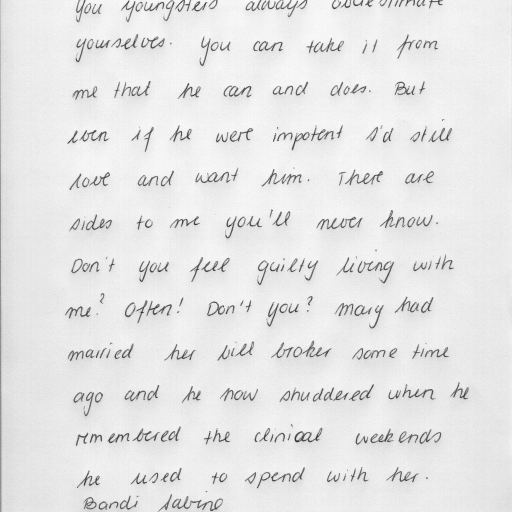 you youngsters always overestimate
yourselves. You can take it from
me that he can and does. But
even if he were impotent I'd still
love and want him. There are
sides to me you'll never know.
Don't you feel guilty living with
me? Often! Don't you? Mary had
married her bill broker some time
ago and he now shuddered when he
remembered the clinical weekends
he used to spend with her.
Bandi Sabine